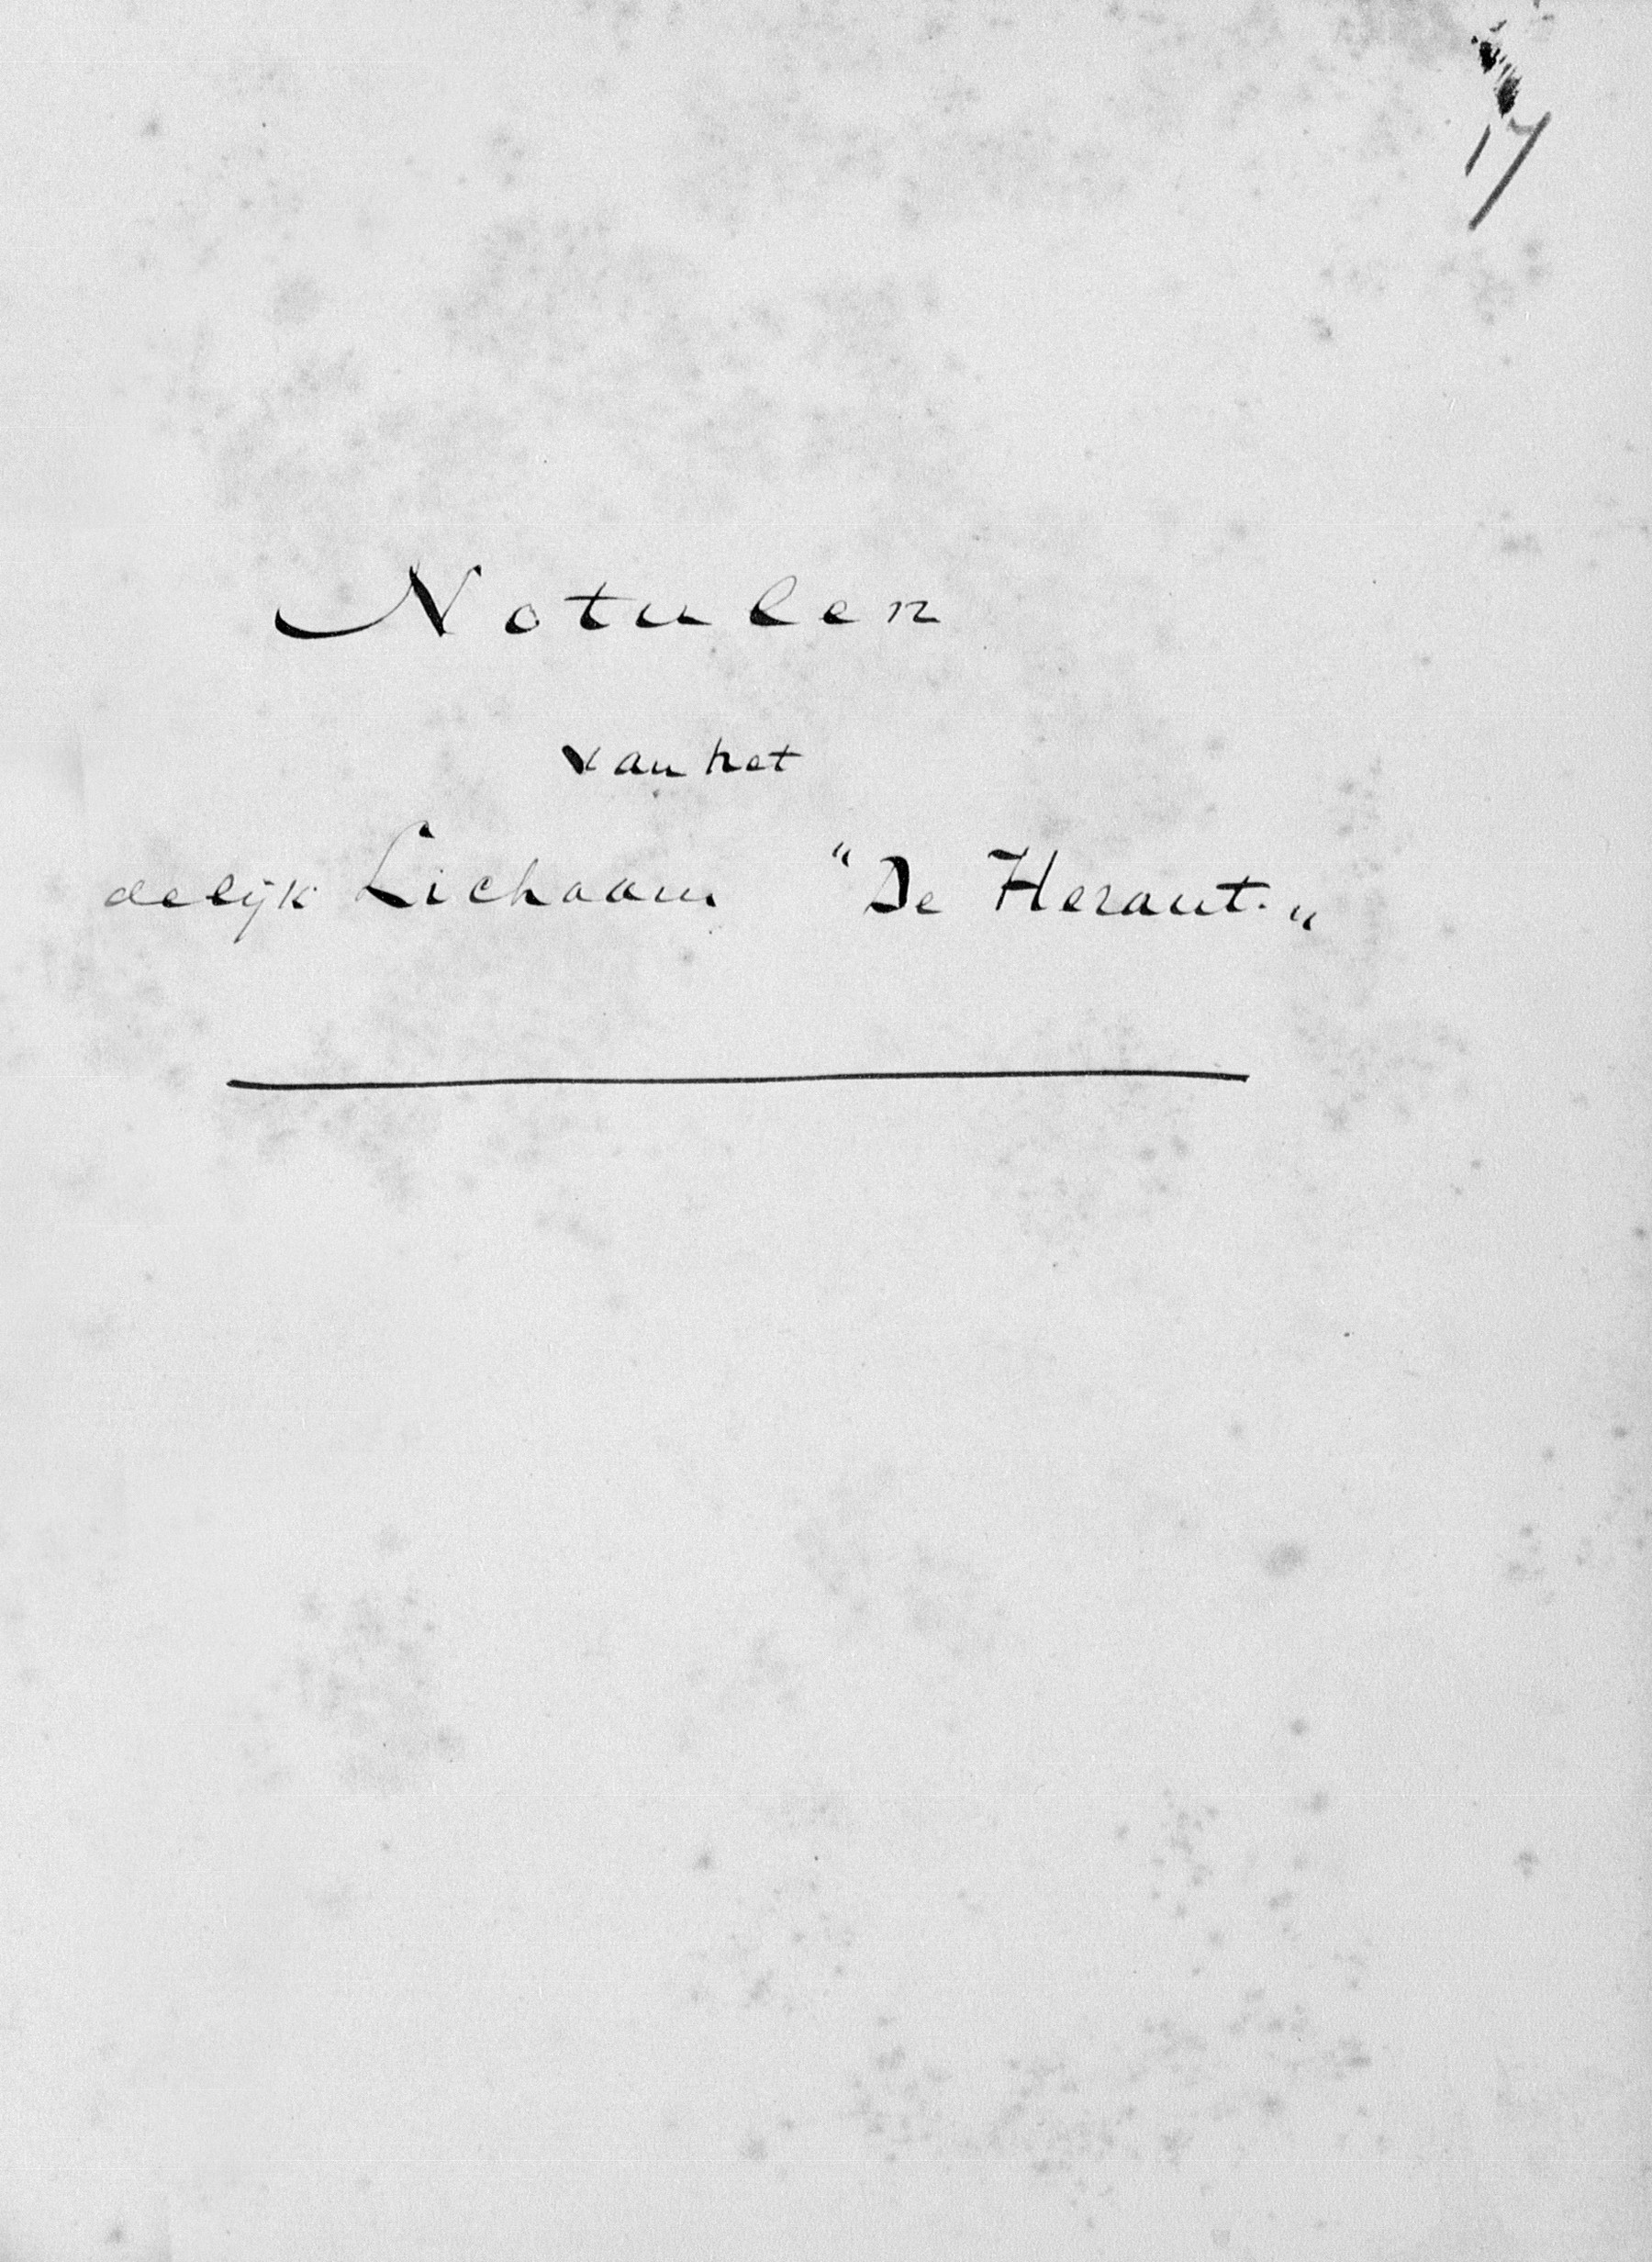 17
Notulen
van het
delijk Lichaam "De Heraut."